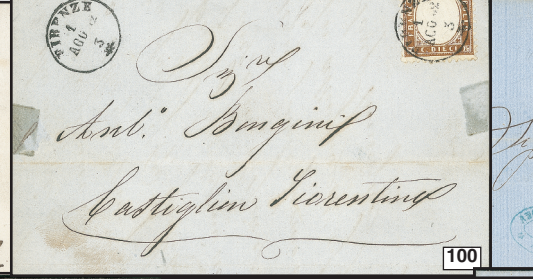 FIRENZE
1
AGO
3
1
AGO
3
C. DIECI
Sigre
Antº Bongini
Castiglion Fiorentino
100